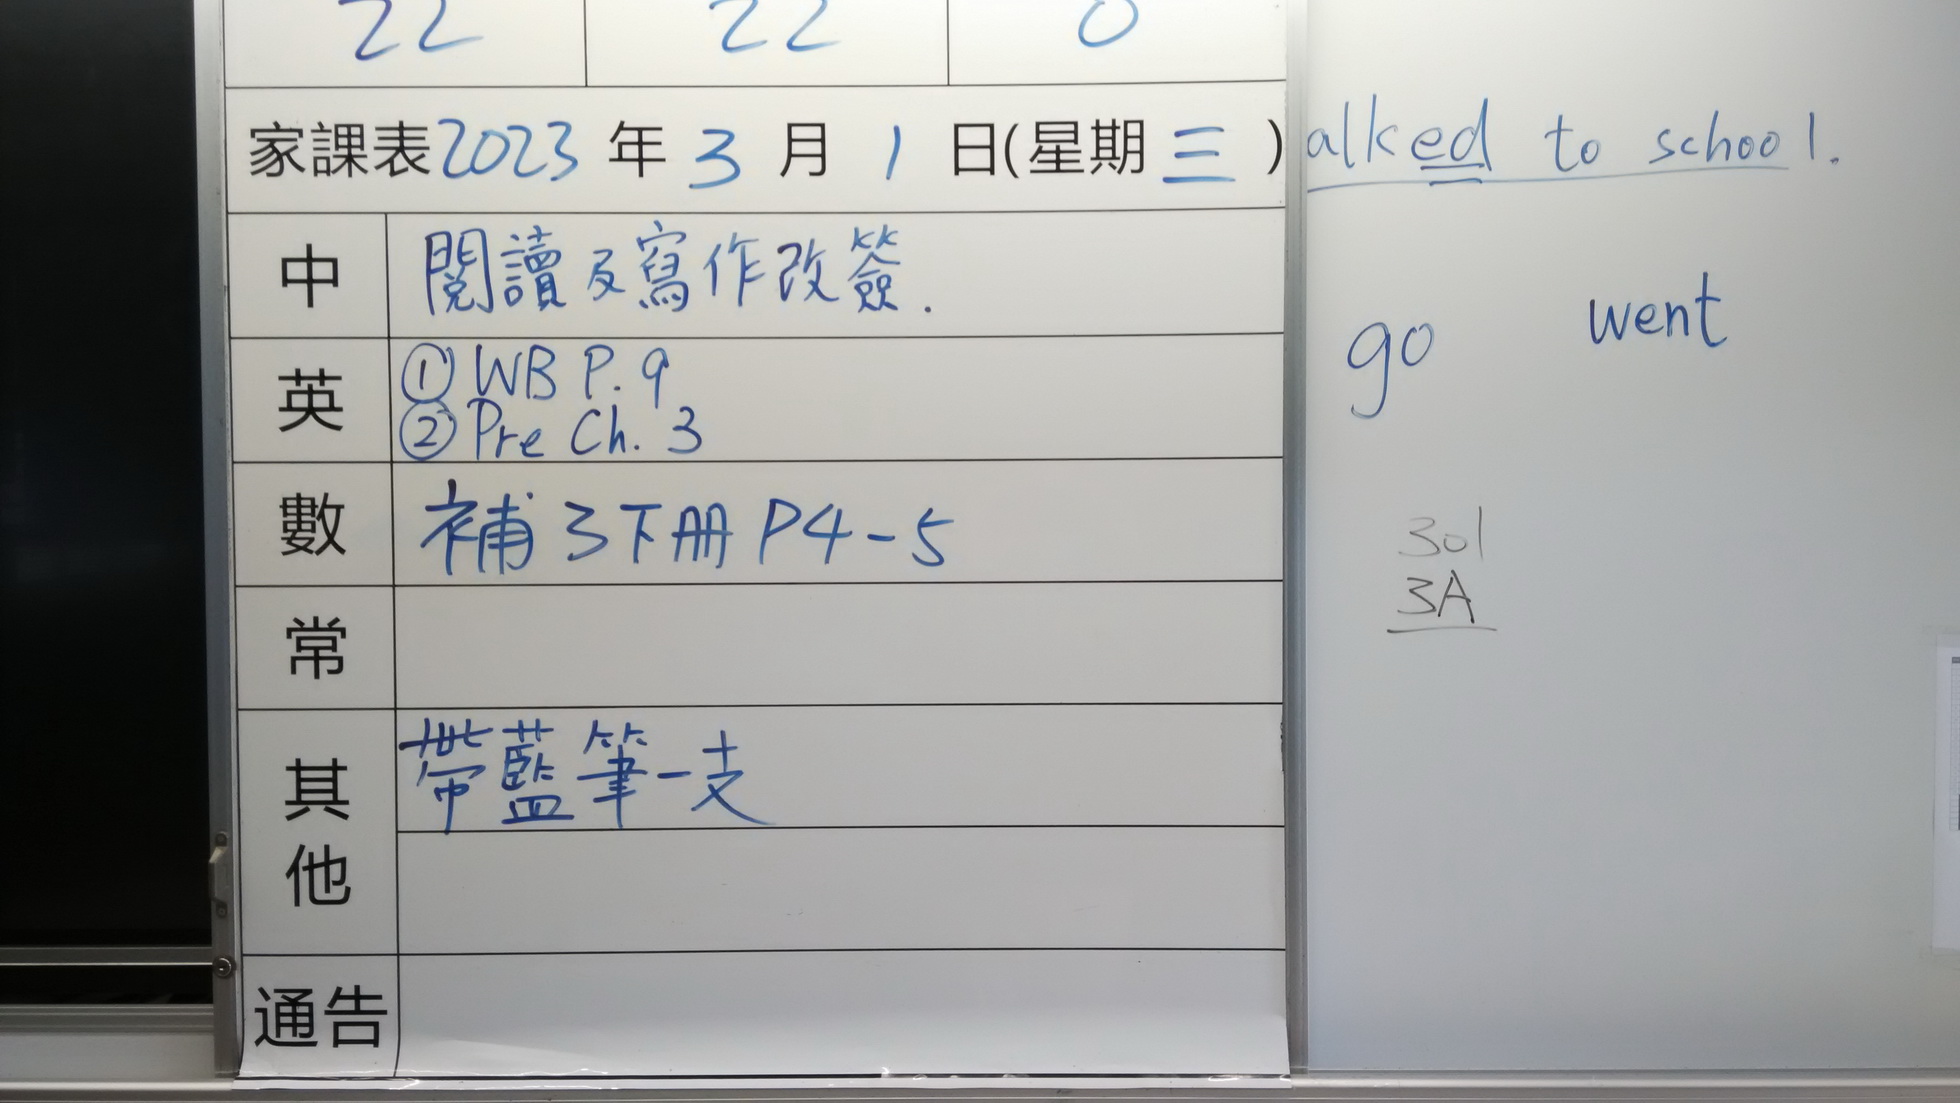 22 22 0
家課表2023年3月1日(星期三)
中 閱讀及寫作改簽.
英 ① WB P. 9
② Pre Ch. 3
數 補3下册P4-5
常
其他 帶藍筆一支
通告
alked to school.
go went
301
3A